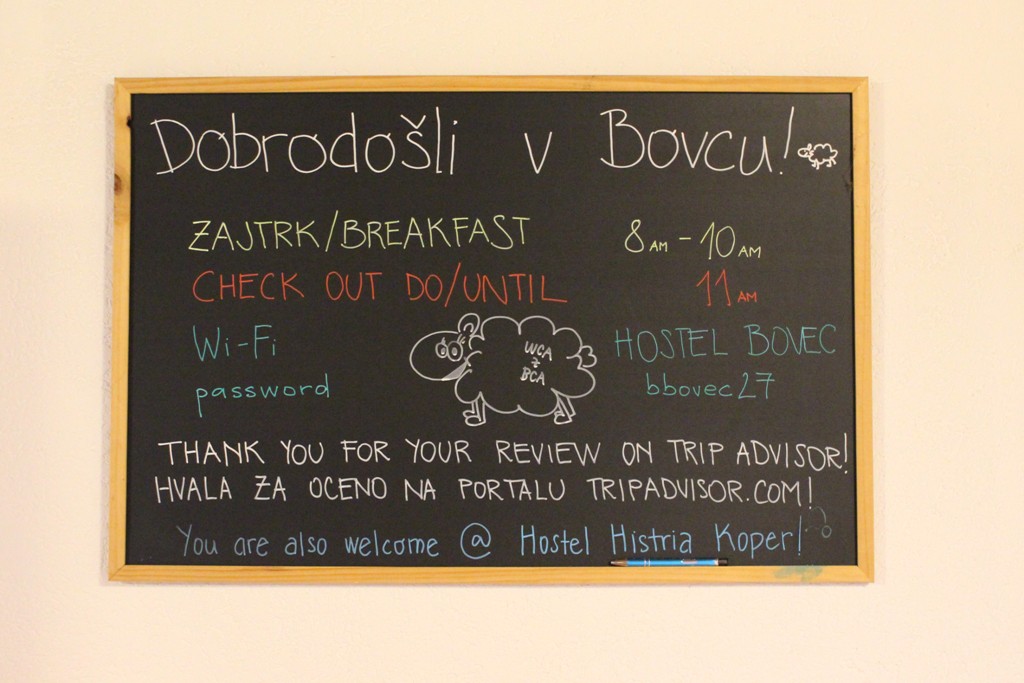 Dobrodošli v Bovcu!
ZAJTRK/BREAKFAST 8 AM - 10 AM
CHECK OUT DO/UNTIL 11 AM
Wi-Fi HOSTEL BOVEC
password bbovec27
WCA
z
BCA
THANK YOU FOR YOUR REVIEW ON TRIP ADVISOR!
HVALA ZA OCENO NA PORTALU TRIPADVISOR.COM!
You are also welcome @ Hostel Histria Koper!